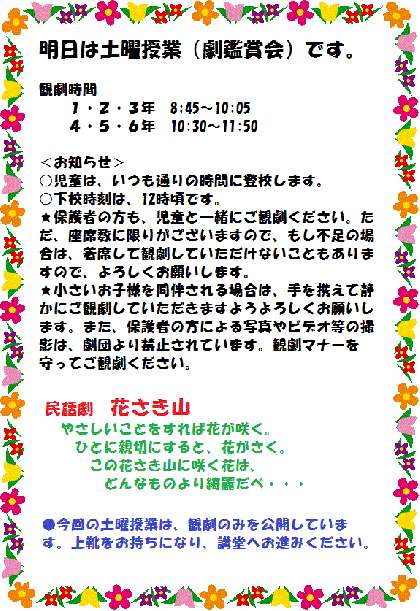 明日は土曜授業（劇鑑賞会）です。
観劇時間
１・２・３年　8:45～10:05
４・５・６年　10:30～11:50
＜お知らせ＞
○児童は、いつも通りの時間に登校します。
○下校時刻は、12時頃です。
★保護者の方も、児童と一緒にご観劇ください。た
だ、座席数に限りがございますので、もし不足の場
合は、着席して観劇していただけないこともありま
すので、よろしくお願いします。
★小さいお子様を同伴される場合は、手を携えて静
かにご観劇していただきますようよろしくお願いし
ます。また、保護者の方による写真やビデオ等の撮
影は、劇団より禁止されています。観劇マナーを
守ってご観劇ください。
民話劇　花さき山
やさしいことをすれば花が咲く。
ひとに親切にすると、花がさく。
この花さき山に咲く花は、
どんなものより綺麗だべ・・・
●今回の土曜授業は、観劇のみを公開していま
す。上靴をお持ちになり、講堂へお進みください。